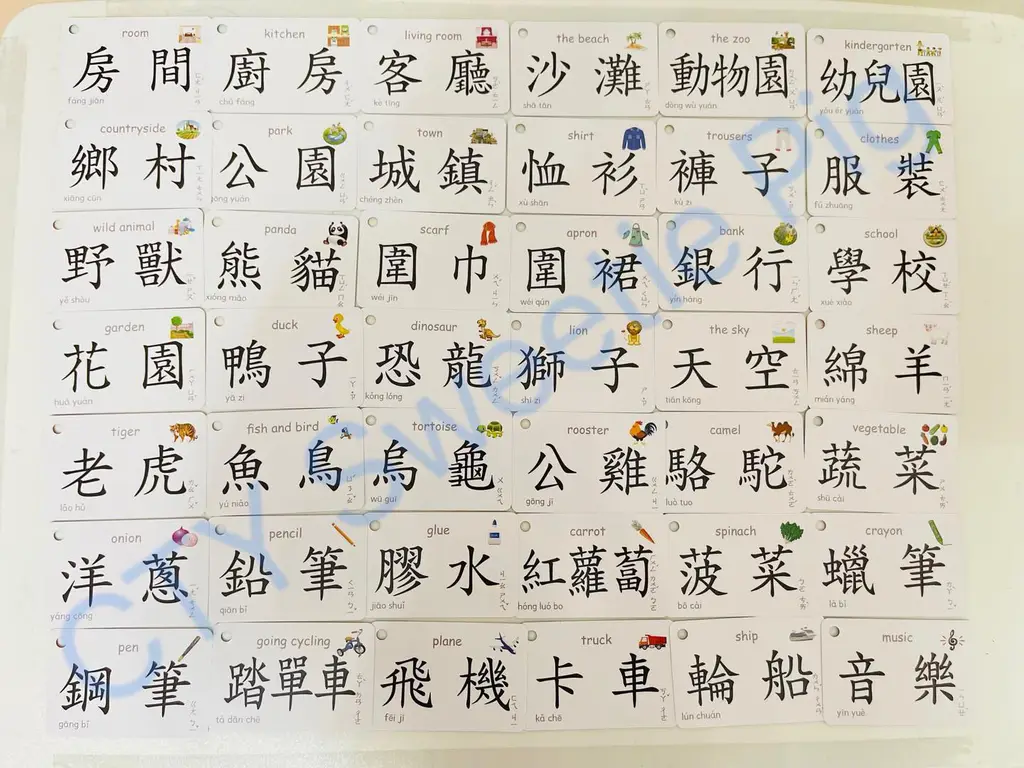 room
房間
fáng jiān
kitchen
廚房
chú fáng
living room
客廳
kè tīng
the beach
沙灘
shā tān
the zoo
動物園
dòng wù yuán
kindergarten
幼兒園
yòu ér yuán
countryside
鄉村
xiāng cūn
park
公園
gōng yuán
town
城鎮
chéng zhèn
shirt
恤衫
xù shān
trousers
褲子
kù zi
clothes
服裝
fú zhuāng
wild animal
野獸
yě shòu
panda
熊貓
xióng māo
scarf
圍巾
wéi jīn
apron
圍裙
wéi qún
bank
銀行
yín háng
school
學校
xué xiào
garden
花園
huā yuán
duck
鴨子
yā zi
dinosaur
恐龍
kǒng lóng
lion
獅子
shī zi
the sky
天空
tiān kōng
sheep
綿羊
mián yáng
tiger
老虎
lǎo hǔ
fish and bird
魚鳥
yú niǎo
tortoise
烏龜
wū guī
rooster
公雞
gōng jī
camel
駱駝
luò tuo
vegetable
蔬菜
shū cài
onion
洋蔥
yáng cōng
pencil
鉛筆
qiān bǐ
glue
膠水
jiāo shuǐ
carrot
紅蘿蔔
hóng luó bo
spinach
菠菜
bō cài
crayon
蠟筆
là bǐ
pen
鋼筆
gāng bǐ
going cycling
踏單車
tà dān chē
plane
飛機
fēi jī
truck
卡車
kǎ chē
ship
輪船
lún chuán
music
音樂
yīn yuè
Sweetie Pig